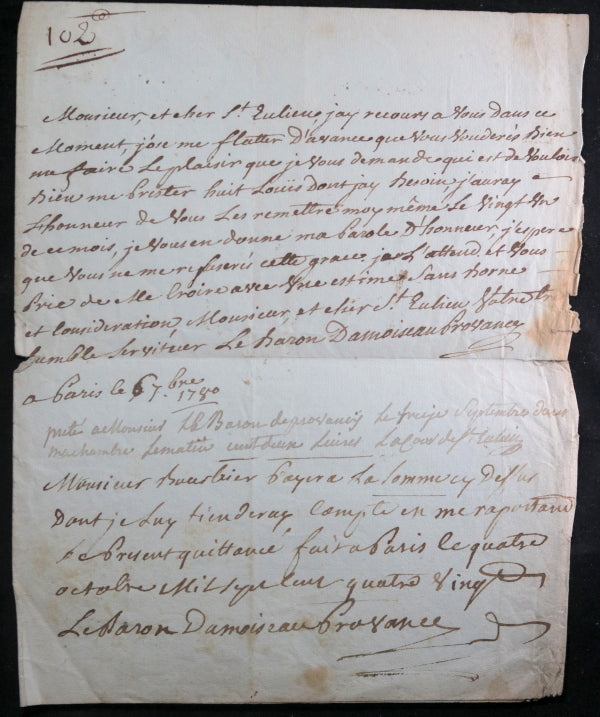 102
Monsieur, et cher St. Eulieu, jay recours a Vous dans ce
Moment, j'ose me flatter D'avance que Vous Vouderés Bien
me faire Le plaisir que je Vous demande qui est de Vouloir
Bien me Prister huit Louis dont jay Besoin j'auray
L'honneur de Vous Les remettre moy même Le Vingt Un
de ce mois, je Vous en donne ma Parole D'honneur, j'espere
que Vous ne me refuserés cette grace je L'attend et Vous
Prie de Me Croire avec Une estime Sans Borne
et Consideration Monsieur, et chér St. Eulieu Votre tr
humble Serviteur Le Baron Damoiseau Provance
a Paris le 6 7.bre 1780
preté a Monsieur LE Baron de provance Le Septembre dans
ma chambre Le matin cent deux Livres
Monsieur Payera La Somme cy Dessus
Dont je Luy tienderay Compte en me raportand
Le Present quittancé fait a Paris le quatre
octobre Mil Sept Cent quatre Vingt
Le Baron Damoiseau Provance